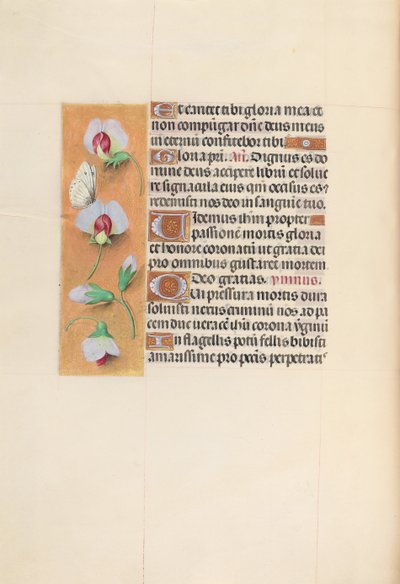 Et cantet tibi gloria mea et
non compūgar dn̄e deus meus
in eternū confitebor tibi
Gloria pr̄i. Añ. Dignus es do
mine deus accipere librū et solue
re signacula eius qm̄ occisus es ⁊
redemisti nos deo in sanguīe tuo.
Uidemus ih̄m propter
passionē mortis gloria
et honore coronatū ut gratia dei
pro omnibus gustaret mortem
Deo gratias. ymnus.
Qui pressura mortis dura
soluisti nexus criminū nos ad pa
cem duc uera ce ih̄u corona v̄ginū
In flagellis potū fellis bibisti
amarissime pro pccīs perpetratis